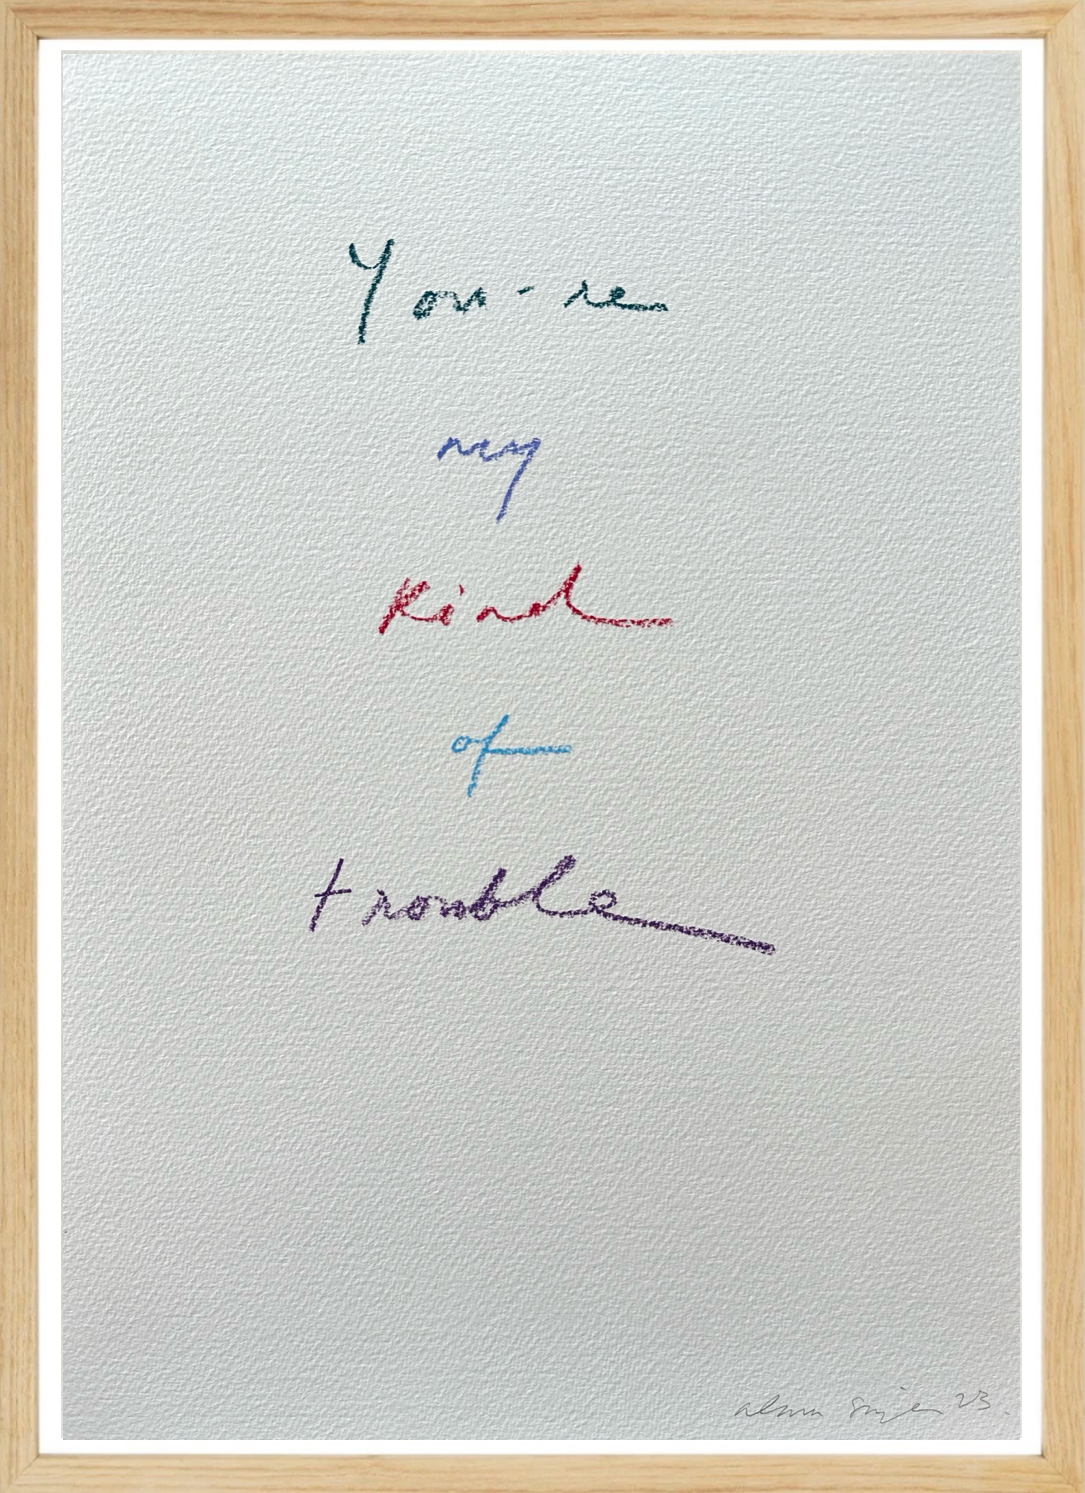 You-re
my
kind
of
trouble
23.